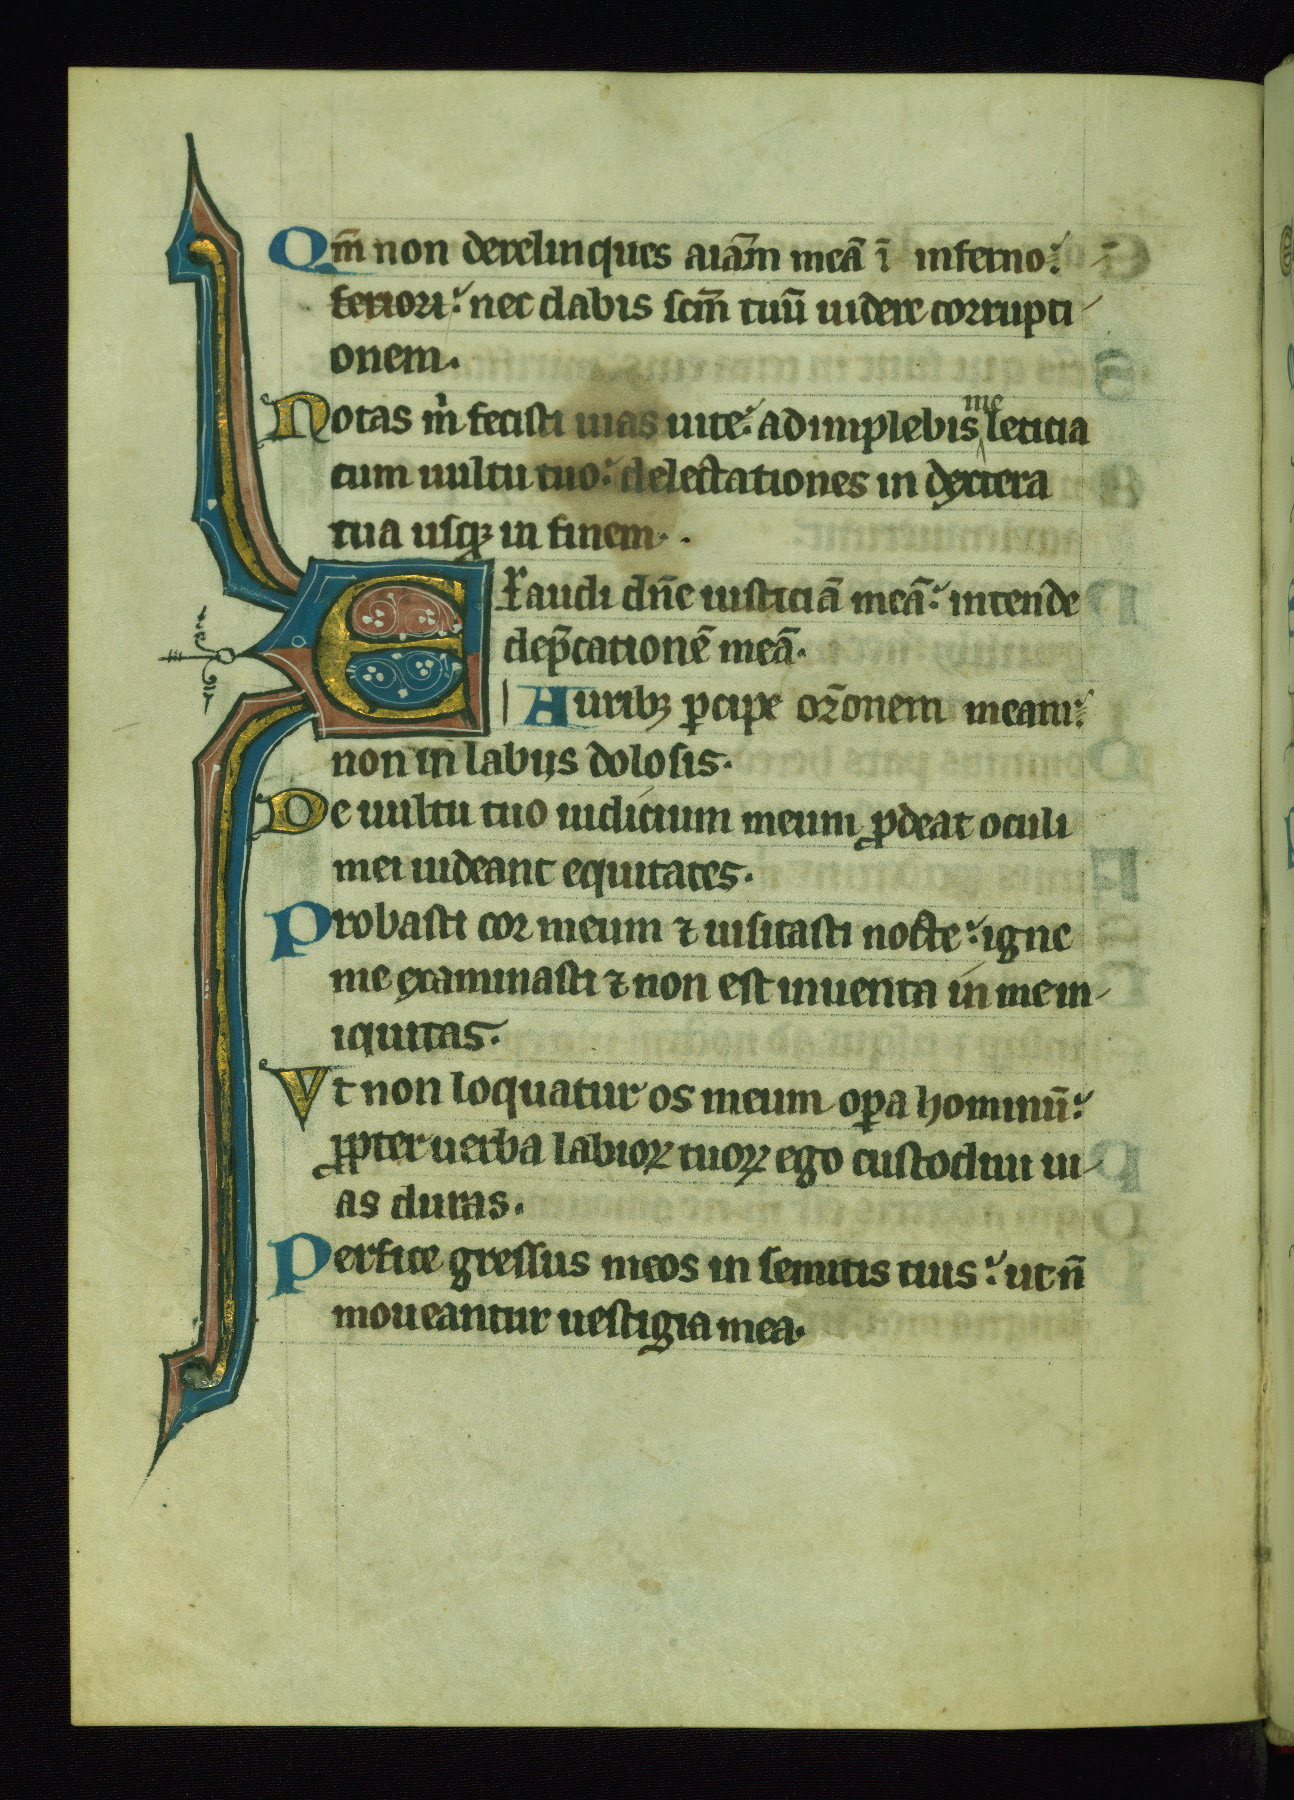 Qm̄ non derelinques aiām meā ī inferno
feriori: nec dabis scm̄ tuū uidere corrupti
onem.
Notas m̄ fecisti uias uite: adimplebis me leticia
cum uultu tuo: delectationes in dextera
tua usqꝫ in finem.
Exaudi dn̄e iusticiā meā: intende
dep̄cationē meā.
Auribꝫ ꝑcipe or̄onem meam:
non in labiis dolosis.
De uultu tuo iudicium meum ꝓdeat oculi
mei uideant equitates.
Probasti cor meum ⁊ uisitasti nocte: igne
me examinasti ⁊ non est inuenta in me in
iquitas.
Vt non loquatur os meum oꝑa hominū:
ꝓpter uerba labioꝝ tuoꝝ ego custodiui ui
as duras.
Perfice gressus meos in semitis tuis: ut n̄
moueantur uestigia mea.